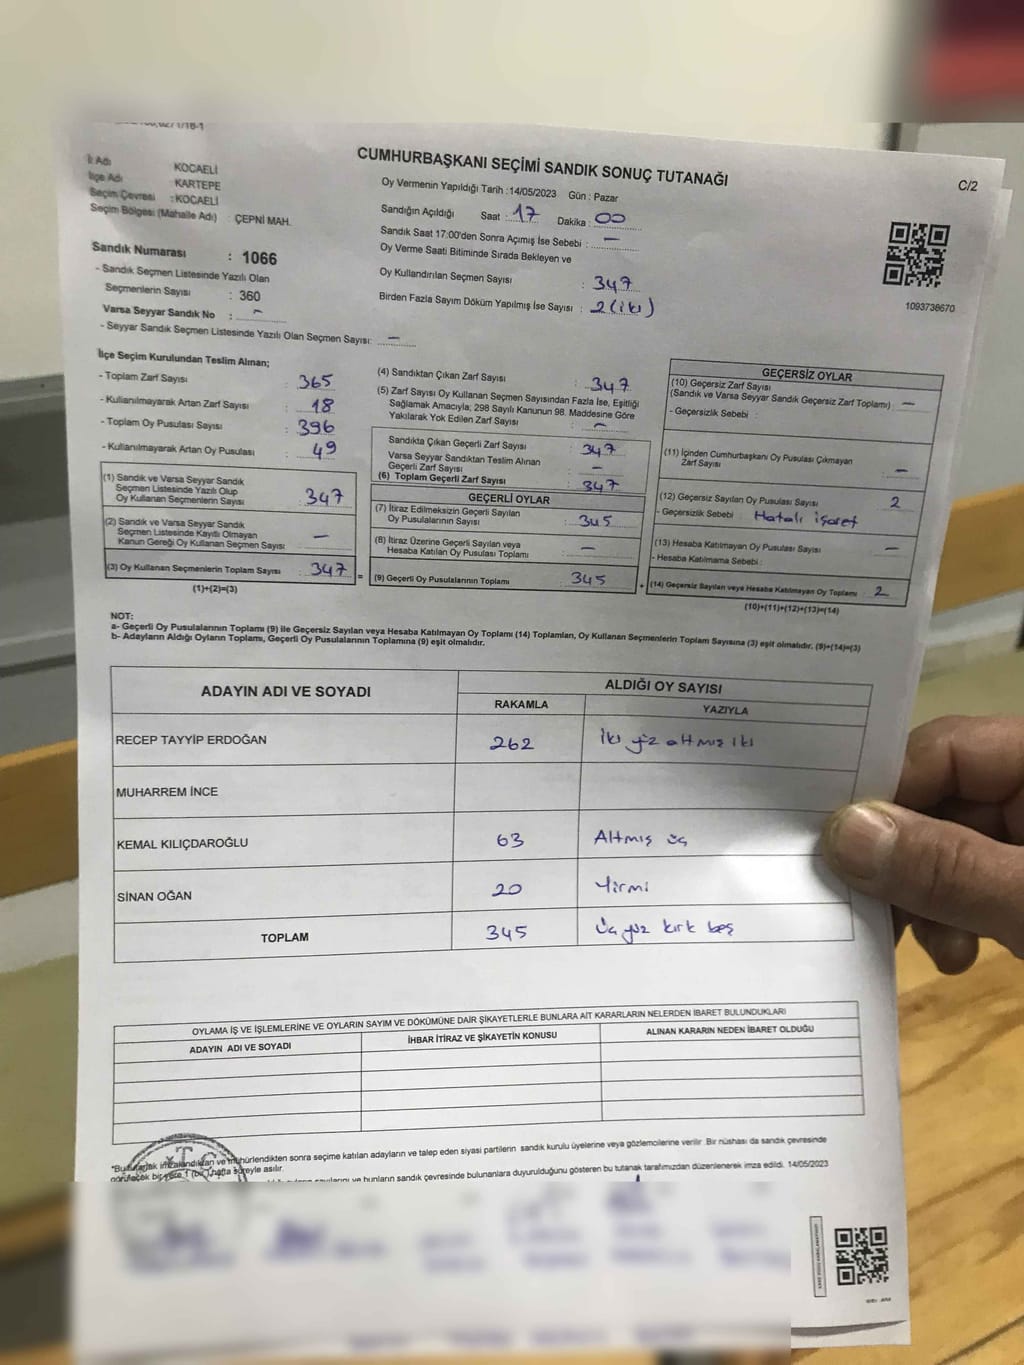 CUMHURBAŞKANI SEÇİMİ SANDIK SONUÇ TUTANAĞI
C/2
İl Adı KOCAELİ
İlçe Adı : KARTEPE
Seçim Çevresi : KOCAELİ
Seçim Bölgesi (Mahalle Adı) : ÇEPNİ MAH.
Sandık Numarası : 1066
- Sandık Seçmen Listesinde Yazılı Olan
Seçmenlerin Sayısı : 360
Varsa Seyyar Sandık No : -
- Seyyar Sandık Seçmen Listesinde Yazılı Olan Seçmen Sayısı: -
Oy Vermenin Yapıldığı Tarih :14/05/2023 Gün : Pazar
Sandığın Açıldığı Saat : 17 Dakika : 00
Sandık Saat 17:00'den Sonra Açımış İse Sebebi : -
Oy Verme Saati Bitiminde Sırada Bekleyen ve
Oy Kullandırılan Seçmen Sayısı : 347
Birden Fazla Sayım Döküm Yapılmış İse Sayısı : 2 (iki)
1093738670
İlçe Seçim Kurulundan Teslim Alınan;
- Toplam Zarf Sayısı : 365
- Kullanılmayarak Artan Zarf Sayısı : 18
- Toplam Oy Pusulası Sayısı : 396
- Kullanılmayarak Artan Oy Pusulası : 49
(1) Sandık ve Varsa Seyyar Sandık
Seçmen Listesinde Yazılı Olup
Oy Kullanan Seçmenlerin Sayısı : 347
(2) Sandık ve Varsa Seyyar Sandık
Seçmen Listesinde Kayıtlı Olmayan
Kanun Gereği Oy Kullanan Seçmen Sayısı : -
(3) Oy Kullanan Seçmenlerin Toplam Sayısı : 347
(1)+(2)=(3)
(4) Sandıktan Çıkan Zarf Sayısı : 347
(5) Zarf Sayısı Oy Kullanan Seçmen Sayısından Fazla İse, Eşitliği
Sağlamak Amacıyla; 298 Sayılı Kanunun 98. Maddesine Göre
Yakılarak Yok Edilen Zarf Sayısı : -
Sandıkta Çıkan Geçerli Zarf Sayısı : 347
Varsa Seyyar Sandıktan Teslim Alınan
Geçerli Zarf Sayısı : -
(6) Toplam Geçerli Zarf Sayısı : 347
GEÇERLİ OYLAR
(7) İtiraz Edilmeksizin Geçerli Sayılan
Oy Pusulalarının Sayısı : 345
(8) İtiraz Üzerine Geçerli Sayılan veya
Hesaba Katılan Oy Pusulası Toplamı : -
= (9) Geçerli Oy Pusulalarının Toplamı : 345
GEÇERSİZ OYLAR
(10) Geçersiz Zarf Sayısı
(Sandık ve Varsa Seyyar Sandık Geçersiz Zarf Toplamı) : -
- Geçersizlik Sebebi :
(11) İçinden Cumhurbaşkanı Oy Pusulası Çıkmayan
Zarf Sayısı : -
(12) Geçersiz Sayılan Oy Pusulası Sayısı : 2
- Geçersizlik Sebebi : Hatalı işaret
(13) Hesaba Katılmayan Oy Pusulası Sayısı : -
- Hesaba Katılmama Sebebi :
+ (14) Geçersiz Sayılan veya Hesaba Katılmayan Oy Toplamı : 2
(10)+(11)+(12)+(13)=(14)
NOT:
a- Geçerli Oy Pusulalarının Toplamı (9) ile Geçersiz Sayılan veya Hesaba Katılmayan Oy Toplamı (14) Toplamları, Oy Kullanan Seçmenlerin Toplam Sayısına (3) eşit olmalıdır. (9)+(14)=(3)
b- Adayların Aldığı Oyların Toplamı, Geçerli Oy Pusulalarının Toplamına (9) eşit olmalıdır.
ADAYIN ADI VE SOYADI ALDIĞI OY SAYISI
RAKAMLA YAZIYLA
RECEP TAYYİP ERDOĞAN 262 iki yüz altmış iki
MUHARREM İNCE
KEMAL KILIÇDAROĞLU 63 Altmış üç
SİNAN OĞAN 20 Yirmi
TOPLAM 345 Üç yüz kırk beş
OYLAMA İŞ VE İŞLEMLERİNE VE OYLARIN SAYIM VE DÖKÜMÜNE DAİR ŞİKAYETLERLE BUNLARA AİT KARARLARIN NELERDEN İBARET BULUNDUKLARI
ADAYIN ADI VE SOYADI İHBAR İTİRAZ VE ŞİKAYETİN KONUSU ALINAN KARARIN NEDEN İBARET OLDUĞU
*Bu tutanak imzalandıktan ve mühürlendikten sonra seçime katılan adayların ve talep eden siyasi partilerin sandık kurulu üyelerine veya gözlemcilerine verilir. Bir nüshası da sandık çevresinde
görülecek bir yere 1 (bir) hafta süreyle asılır.
ve bunların sandık çevresinde bulunanlara duyurulduğunu gösteren bu tutanak tarafımızdan düzenlenerek imza edildi. 14/05/2023